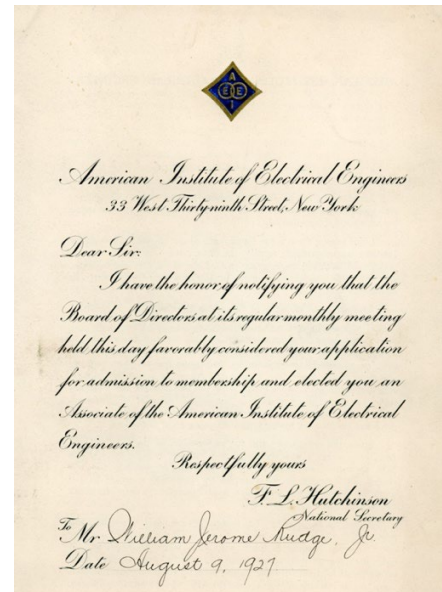 A
E E
I
American Institute of Electrical Engineers
33 West Thirty-ninth Street, New York
Dear Sir:
I have the honor of notifying you that the
Board of Directors at its regular monthly meeting
held this day favorably considered your application
for admission to membership and elected you an
Associate of the American Institute of Electrical
Engineers.
Respectfully yours
F. L. Hutchinson
National Secretary
To Mr William Jerome Rudge, Jr.
Date August 9, 1927